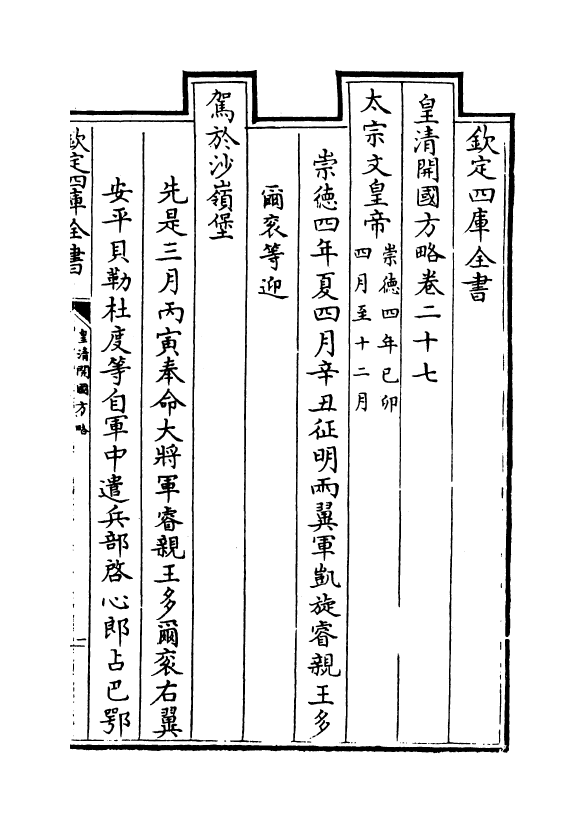 欽定四庫全書
皇清開國方略卷二十七
太宗文皇帝崇德四年己卯四月至十二月
崇德四年夏四月辛丑征明兩翼軍凱旋睿親王多
爾袞等迎
駕於沙嶺堡
先是三月丙寅奉命大將軍睿親王多爾袞右翼
安平貝勒杜度等自軍中遣兵部啓心郎占巴鄂
欽定四庫全書
皇清開國方略